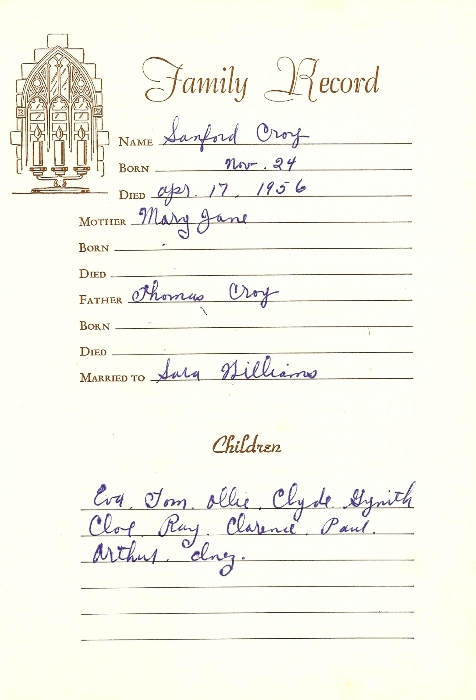 Family Record
NAME Sanford Croy
BORN Nov. 24
DIED Apr. 17, 1956
MOTHER Mary Jane
BORN
DIED
FATHER Thomas Croy
BORN
DIED
MARRIED TO Sara Williams
Children
Eva. Tom. Ollie. Clyde
Cloe Ray. Clarence. Paul.
Arthur.